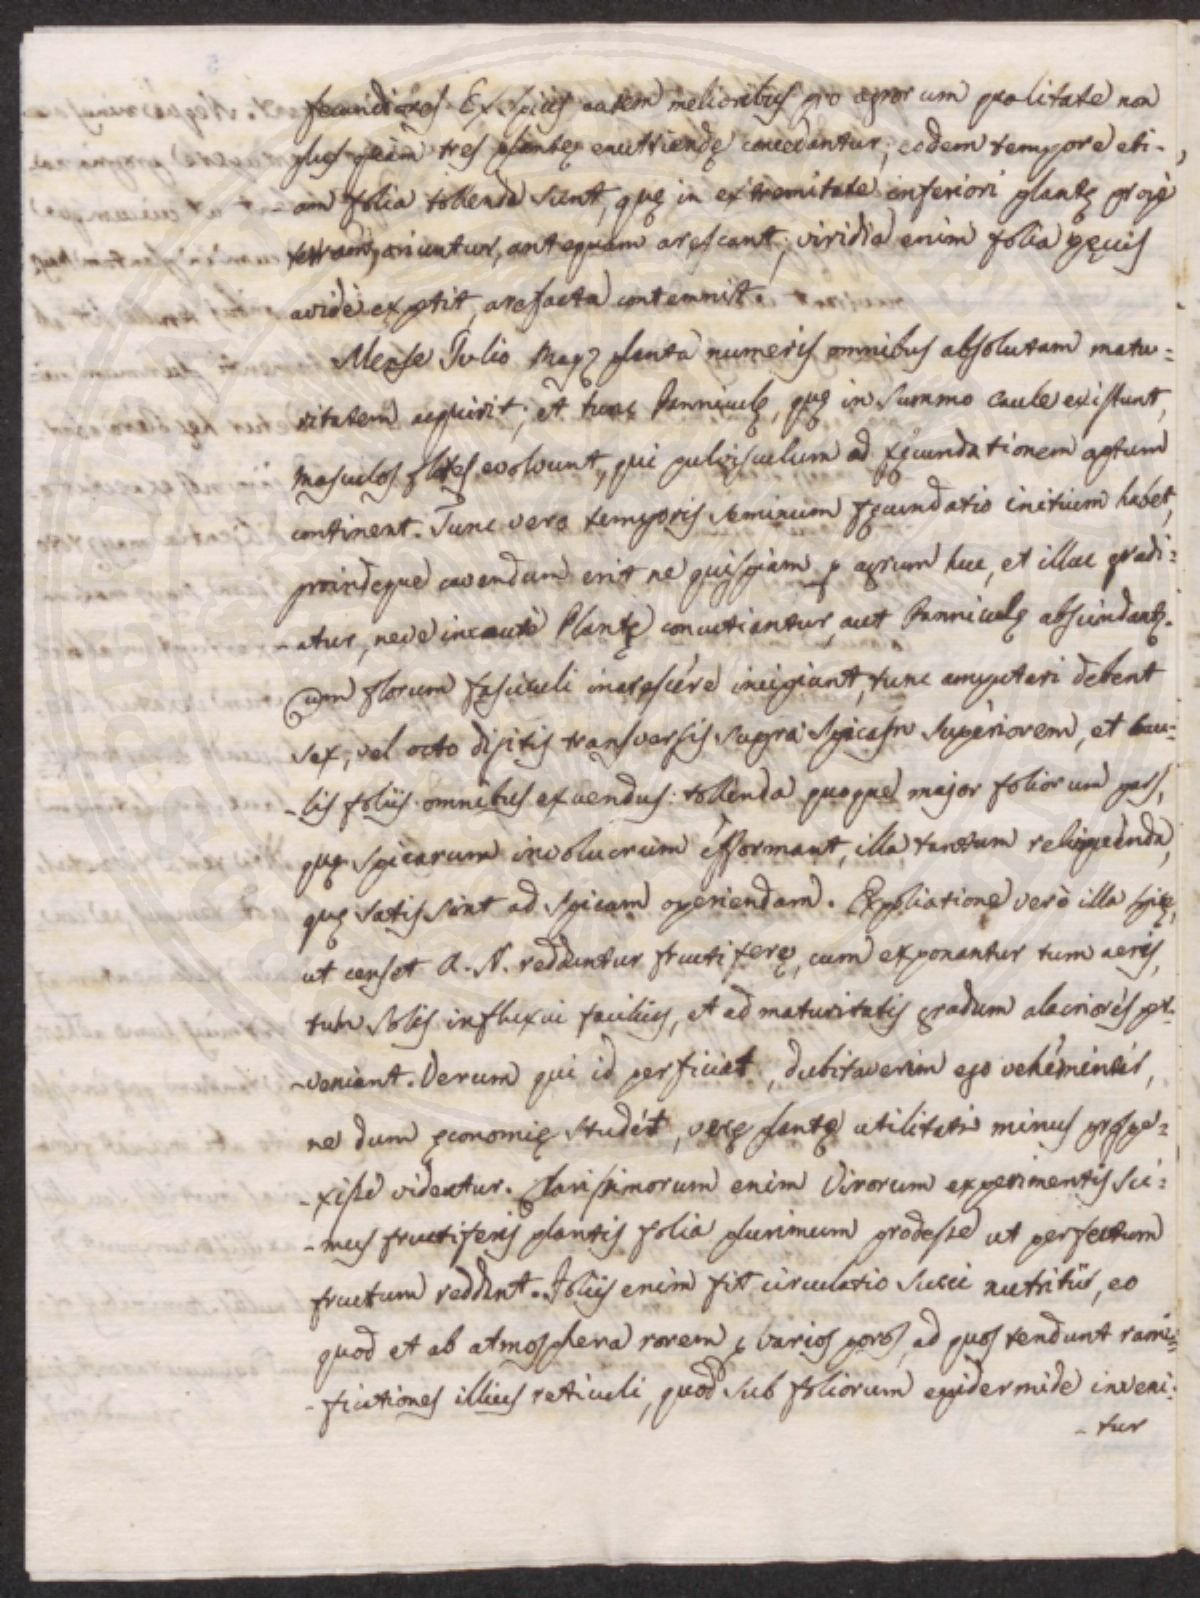 fecundiores. Ex spicis autem melioribus pro agrorum qualitate non
plus quam tres plantę enutriendę concedantur; eodem tempore eti-
-am folia tollenda sunt, quę in extremitate inferiori plantę propè
terram, oriuntur, antequam arescant; viridia enim folia pęcus
avidè expetit, arefacta contemnit.
Mense Julio Mays planta numeris omnibus absolutam matu-
ritatem acquirit; et tunc Panniculę, quę in summo caule existunt,
masculos flores evolvunt, qui pulvisculum ad fęcundationem aptum
continent. Tunc vero temporis seminum fęcundatio initium habet,
proindeque cavendum erit ne quispiam p agrum huc, et illuc gradi-
-atur, neve incautè Plantę concutiantur, aut Panniculę abscindantr.
Cum florum fasciculi inarescere incipiunt, tunc amputari debent
sex, vel octo digitis transversis supra spicam superiorem, et cau-
-lis foliis omnibus exuendus: tollenda quoque major foliorum pars,
quę spicarum involucrum efformant, illa tantum relinquenda,
quę satis sint ad spicam operiendam. Expoliatione verò illa spicę,
ut censet A. N. redduntur fructiferę, cum exponantur tum aeris,
tum Solis influxui facilius, et ad maturitatis gradum alacriores per-
-veniant. Verum qui id perficiat, dubitaverim ego vehementer,
ne dum ęconomię studet, verę plantę utilitati minus prospe-
-xisse videatur. Clarissimorum enim Virorum experimentis sci-
-mus fructiferis plantis folia plurimum prodesse ut perfectum
fructum reddant. Foliis enim fit circulatio succi nutritii, eo
quod et ab atmosphera rorem p varios poros, ad quos tendunt rami-
-fictiones illius reticuli, quod sub foliorum epidermide inveni-
-tur